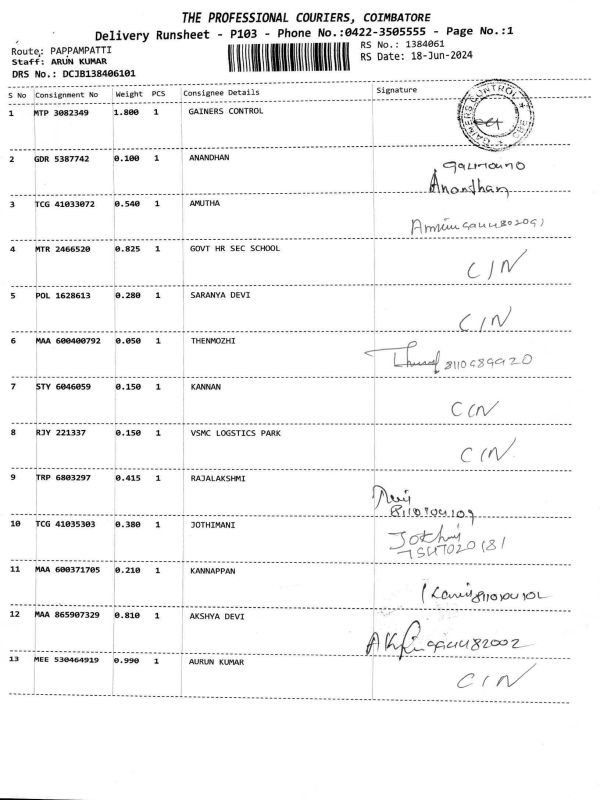 THE PROFESSIONAL COURIERS, COIMBATORE
Delivery Runsheet - P103 - Phone No.:0422-3505555 - Page No.:1
Route: PAPPAMPATTI
Staff: ARUN KUMAR
DRS No.: DCJB138406101
RS No.: 1384061
RS Date: 18-Jun-2024
S No Consignment No Weight PCS Consignee Details Signature
1 MTP 3082349 1.800 1 GAINERS CONTROL
2 GDR 5387742 0.100 1 ANANDHAN
Anandhan
3 TCG 41033072 0.540 1 AMUTHA
4 MTR 2466520 0.825 1 GOVT HR SEC SCHOOL
C/N
5 POL 1628613 0.280 1 SARANYA DEVI
C/N
6 MAA 600400792 0.050 1 THENMOZHI
7 STY 6046059 0.150 1 KANNAN
C/N
8 RJY 221337 0.150 1 VSMC LOGSTICS PARK
C/N
9 TRP 6803297 0.415 1 RAJALAKSHMI
10 TCG 41035303 0.380 1 JOTHIMANI
11 MAA 600371705 0.210 1 KANNAPPAN
12 MAA 865907329 0.810 1 AKSHYA DEVI
13 MEE 530464919 0.990 1 AURUN KUMAR
C/N